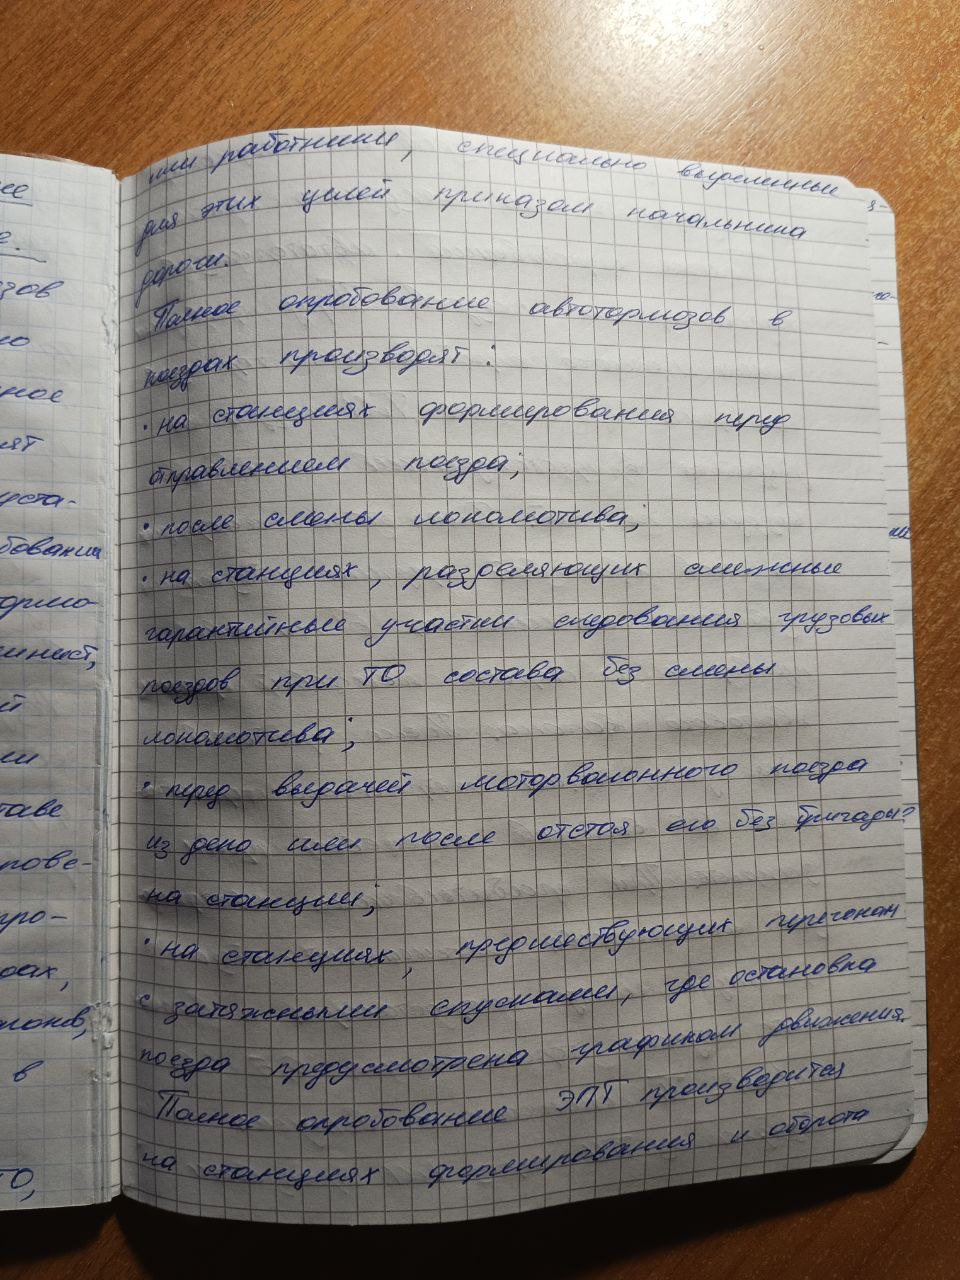 или работники, специально выделенные
для этих целей приказом начальника
дороги.
Полное опробование автотормозов в
поездах производят:
· на станциях формирования перед
отправлением поезда;
· после смены локомотива;
· на станциях, разделяющих смежные
гарантийные участки следования грузовых
поездов при ТО состава без смены
локомотива;
· перед выдачей моторвагонного поезда
из депо или после отстоя его без бригады
на станции;
· на станциях, предшествующих перегонам
с затяжными спусками, где остановка
поезда предусмотрена графиком движения.
Полное опробование ЭПТ производится
на станциях формирования и оборота